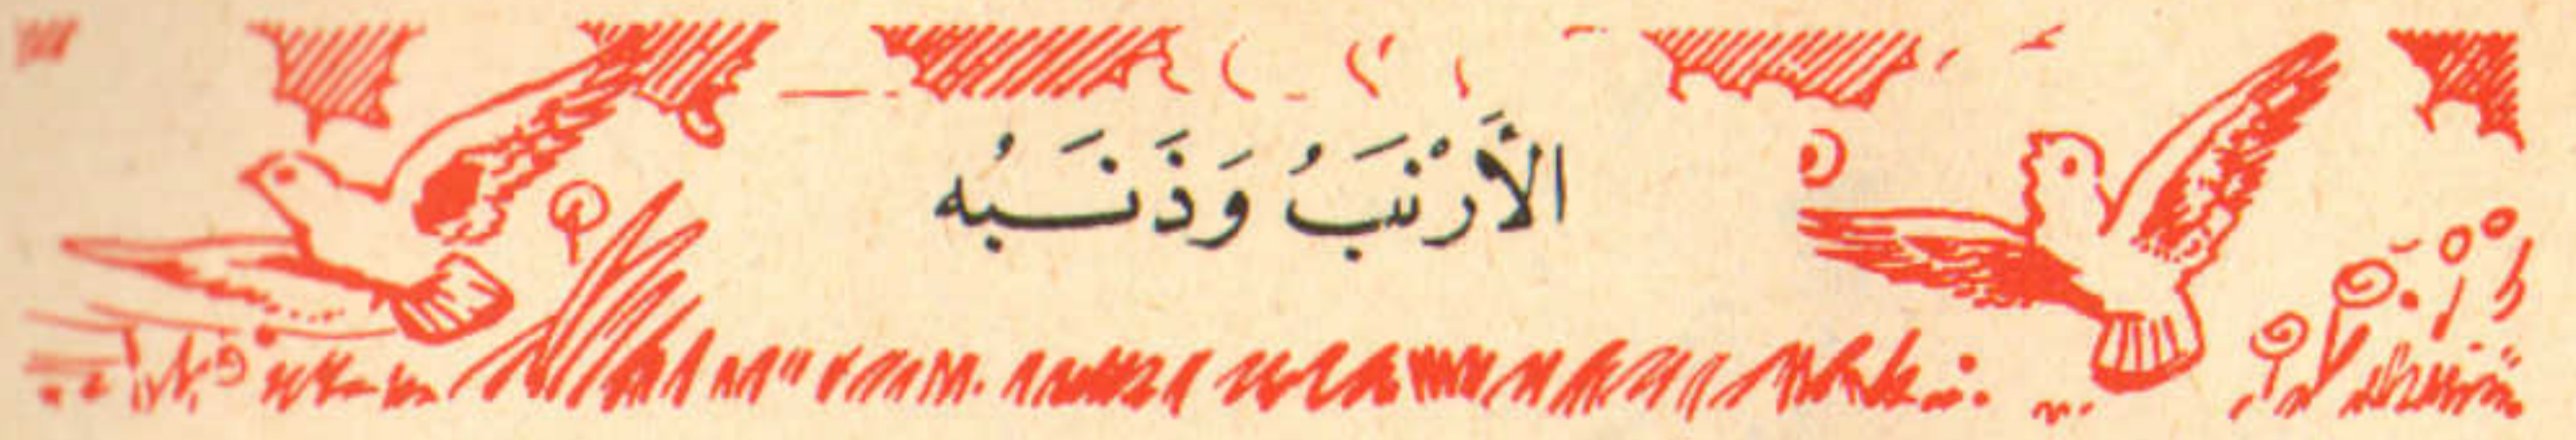 الْأَرْنَبُ وَذَنَبُه